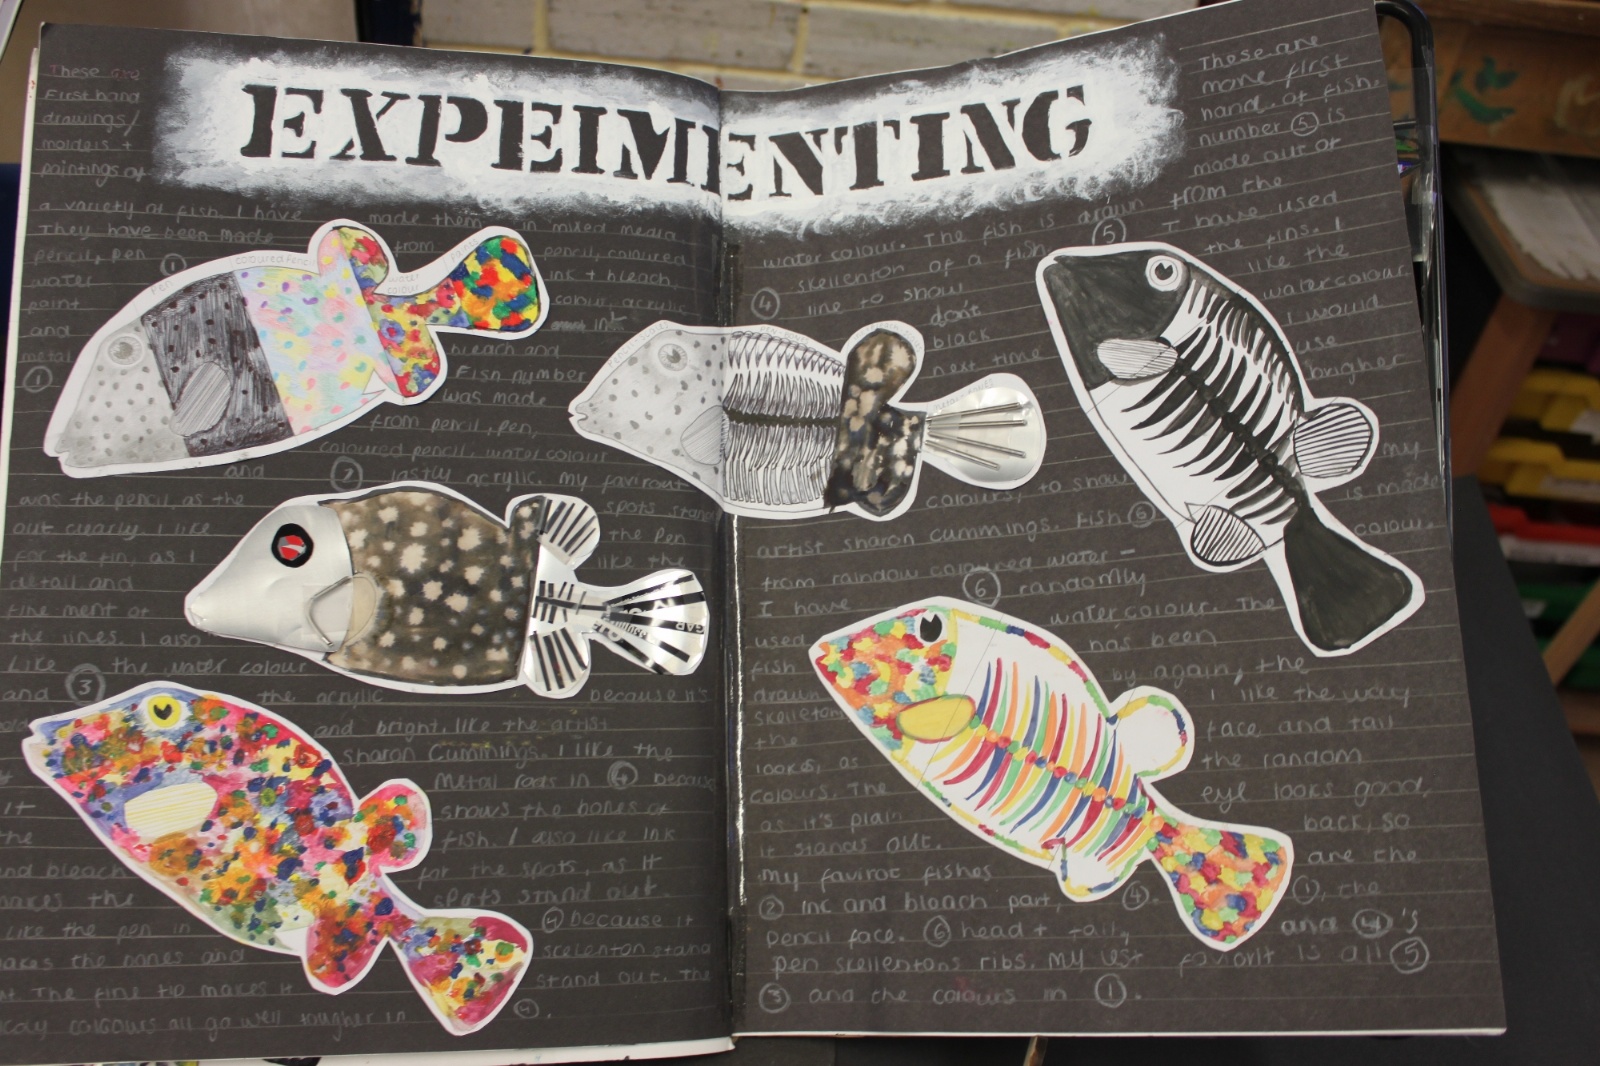 EXPEIMENTING
These are
First hand
drawings/
molders +
paintings of
a variety of fish. I have made them in mixed media.
They have been made from pencil, coloured
pencil, pen ① ink + bleach,
water colour, acrylic
paint ink
and bleach and
metal Fish number
① was made
from pencil, pen,
coloured pencil, water colour
and ② lastly acrylic. My favirout
was the pencil as the spots stand
out clearly. I like the pen
for the fin, as I like the
detail and
fine ment of
the lines. I also
like the water colour
and ③ the acrylic because it's
and bright, like the artist
Sharon Cummings. I like the
Metal foots in ④ because
it shows the bones of
the fish. I also like ink
and bleach for the spots, as it
makes the spots stand out.
like the pen in ④ because it
makes the nanes and skelenton stand
The fine tip makes it stand out. The
colours all go well tougher in ④.
These are
more first
hand. of fish.
number ⑤ is
made out of
water colour. The fish is drawn from the
skellenton of a fish. ⑤ I have used
④ line to show the fins. I
don't like the
black watercolour
next time I would
use
brighter
colours, to show my
artist sharon cummings. Fish ⑥ is made
from rainbow coloured water- colour.
I have ⑥ randomly
used watercolour. The
fish has been
drawn by again, the
skelleton I like the way
the face and tail
looks, as the random
colours. The eye looks good,
as it's plain back, so
it stands out. are the
my favirot fishes ①, the
② inc and bleach part, ④. and ④'s
pencil face. ⑥ head + tail,
pen skellentons ribs. My lest favorit is all ⑤
③ and the colours in ①.
coloured pencil
water
colour